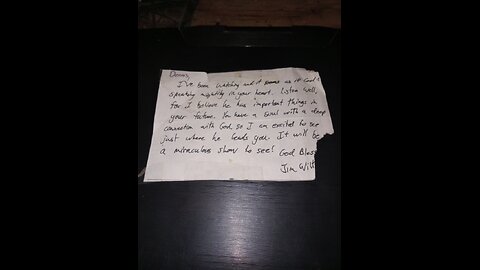 Dennis,
I've been watching and it seems as if God is
speaking mightily in your heart. Listen Well,
for I believe he has important things in
your future. You have a soul with a deep
connection with God, so I am excited to see
just where he leads you. It will be
a miraculous show to see! God Bless
Jim